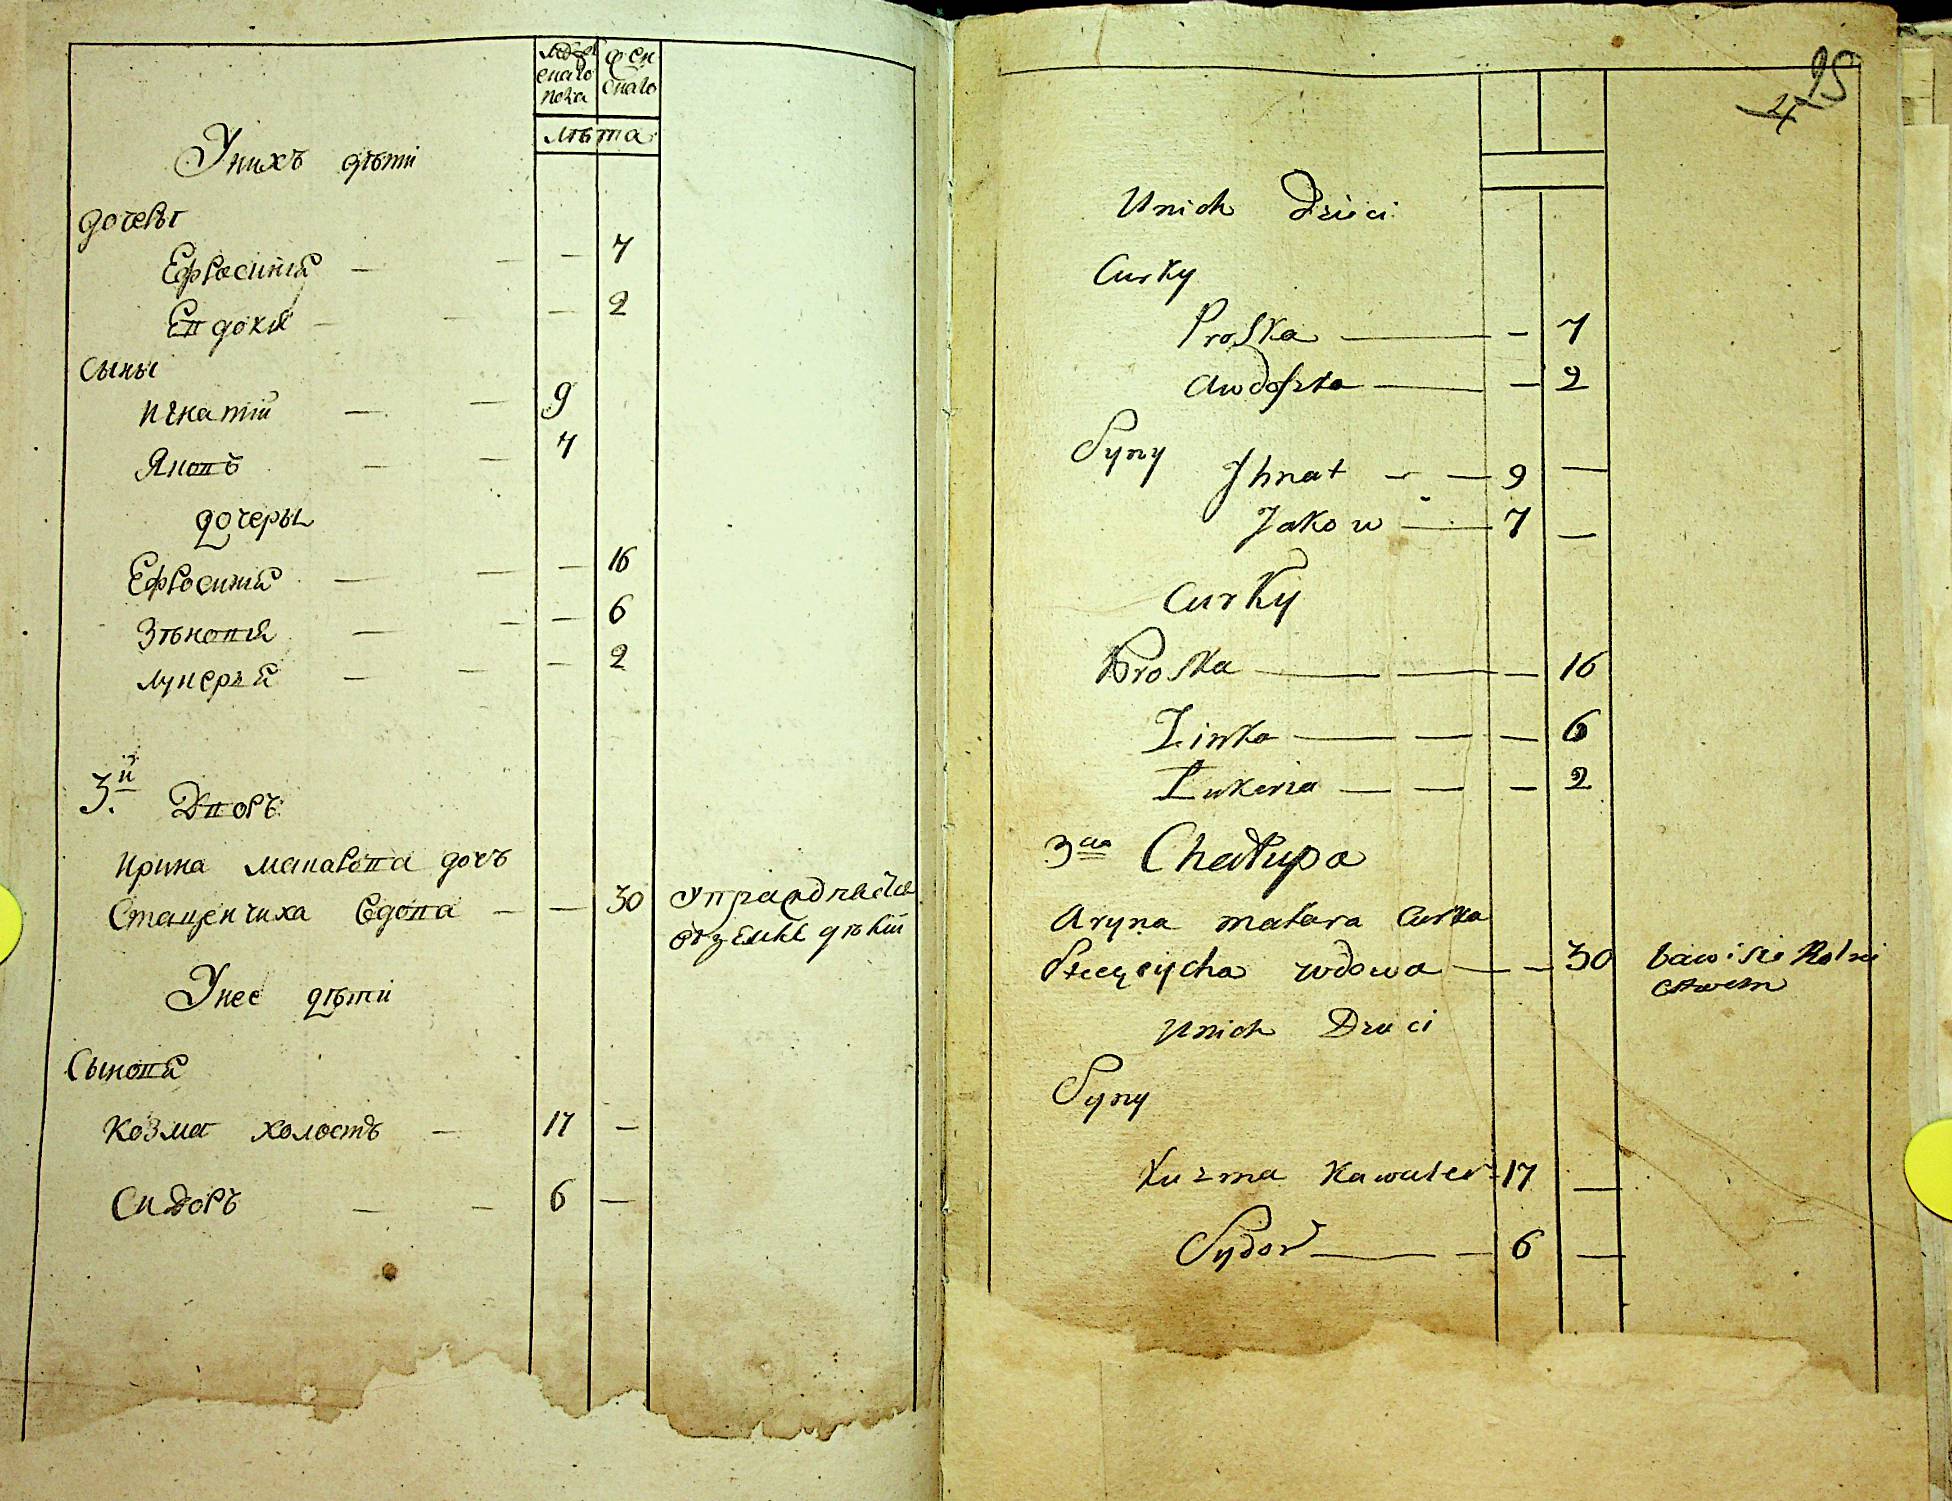 мужескаго пола
женскаго
лѣта
Унихъ дѣти
дочеры
Ефросиния — — — 7
Евдокия — — — 2
Сыны
игнатiи — — 9
Яковъ — — 7
дочеры
Ефросиния — — — 16
Зѣновия — — — 6
лукерыя — — — 2
3.й Дворъ
ирина макарова дочъ
Стаценчиха вдова — — 30
Унее дѣти
Сыновя
козма холостъ — 17 —
Сидоръ — — 6 —
25
Unich Dzieci
Curky
Proska — — 7
Awdoszka — — 2
Syny
Ihnat — — 9 —
Jakow — 7 —
Curky
Proska — — — 16
Zinka — — — — 6
Lukiria — — — 2
3cia Chałupa
Aryna makara Curka
Stecycycha wdowa — — 30 bawi sie Rolni
ctwem
Unich Dzieci
Syny
Kuzma Kawaler 17 —
Sydor — — 6 —